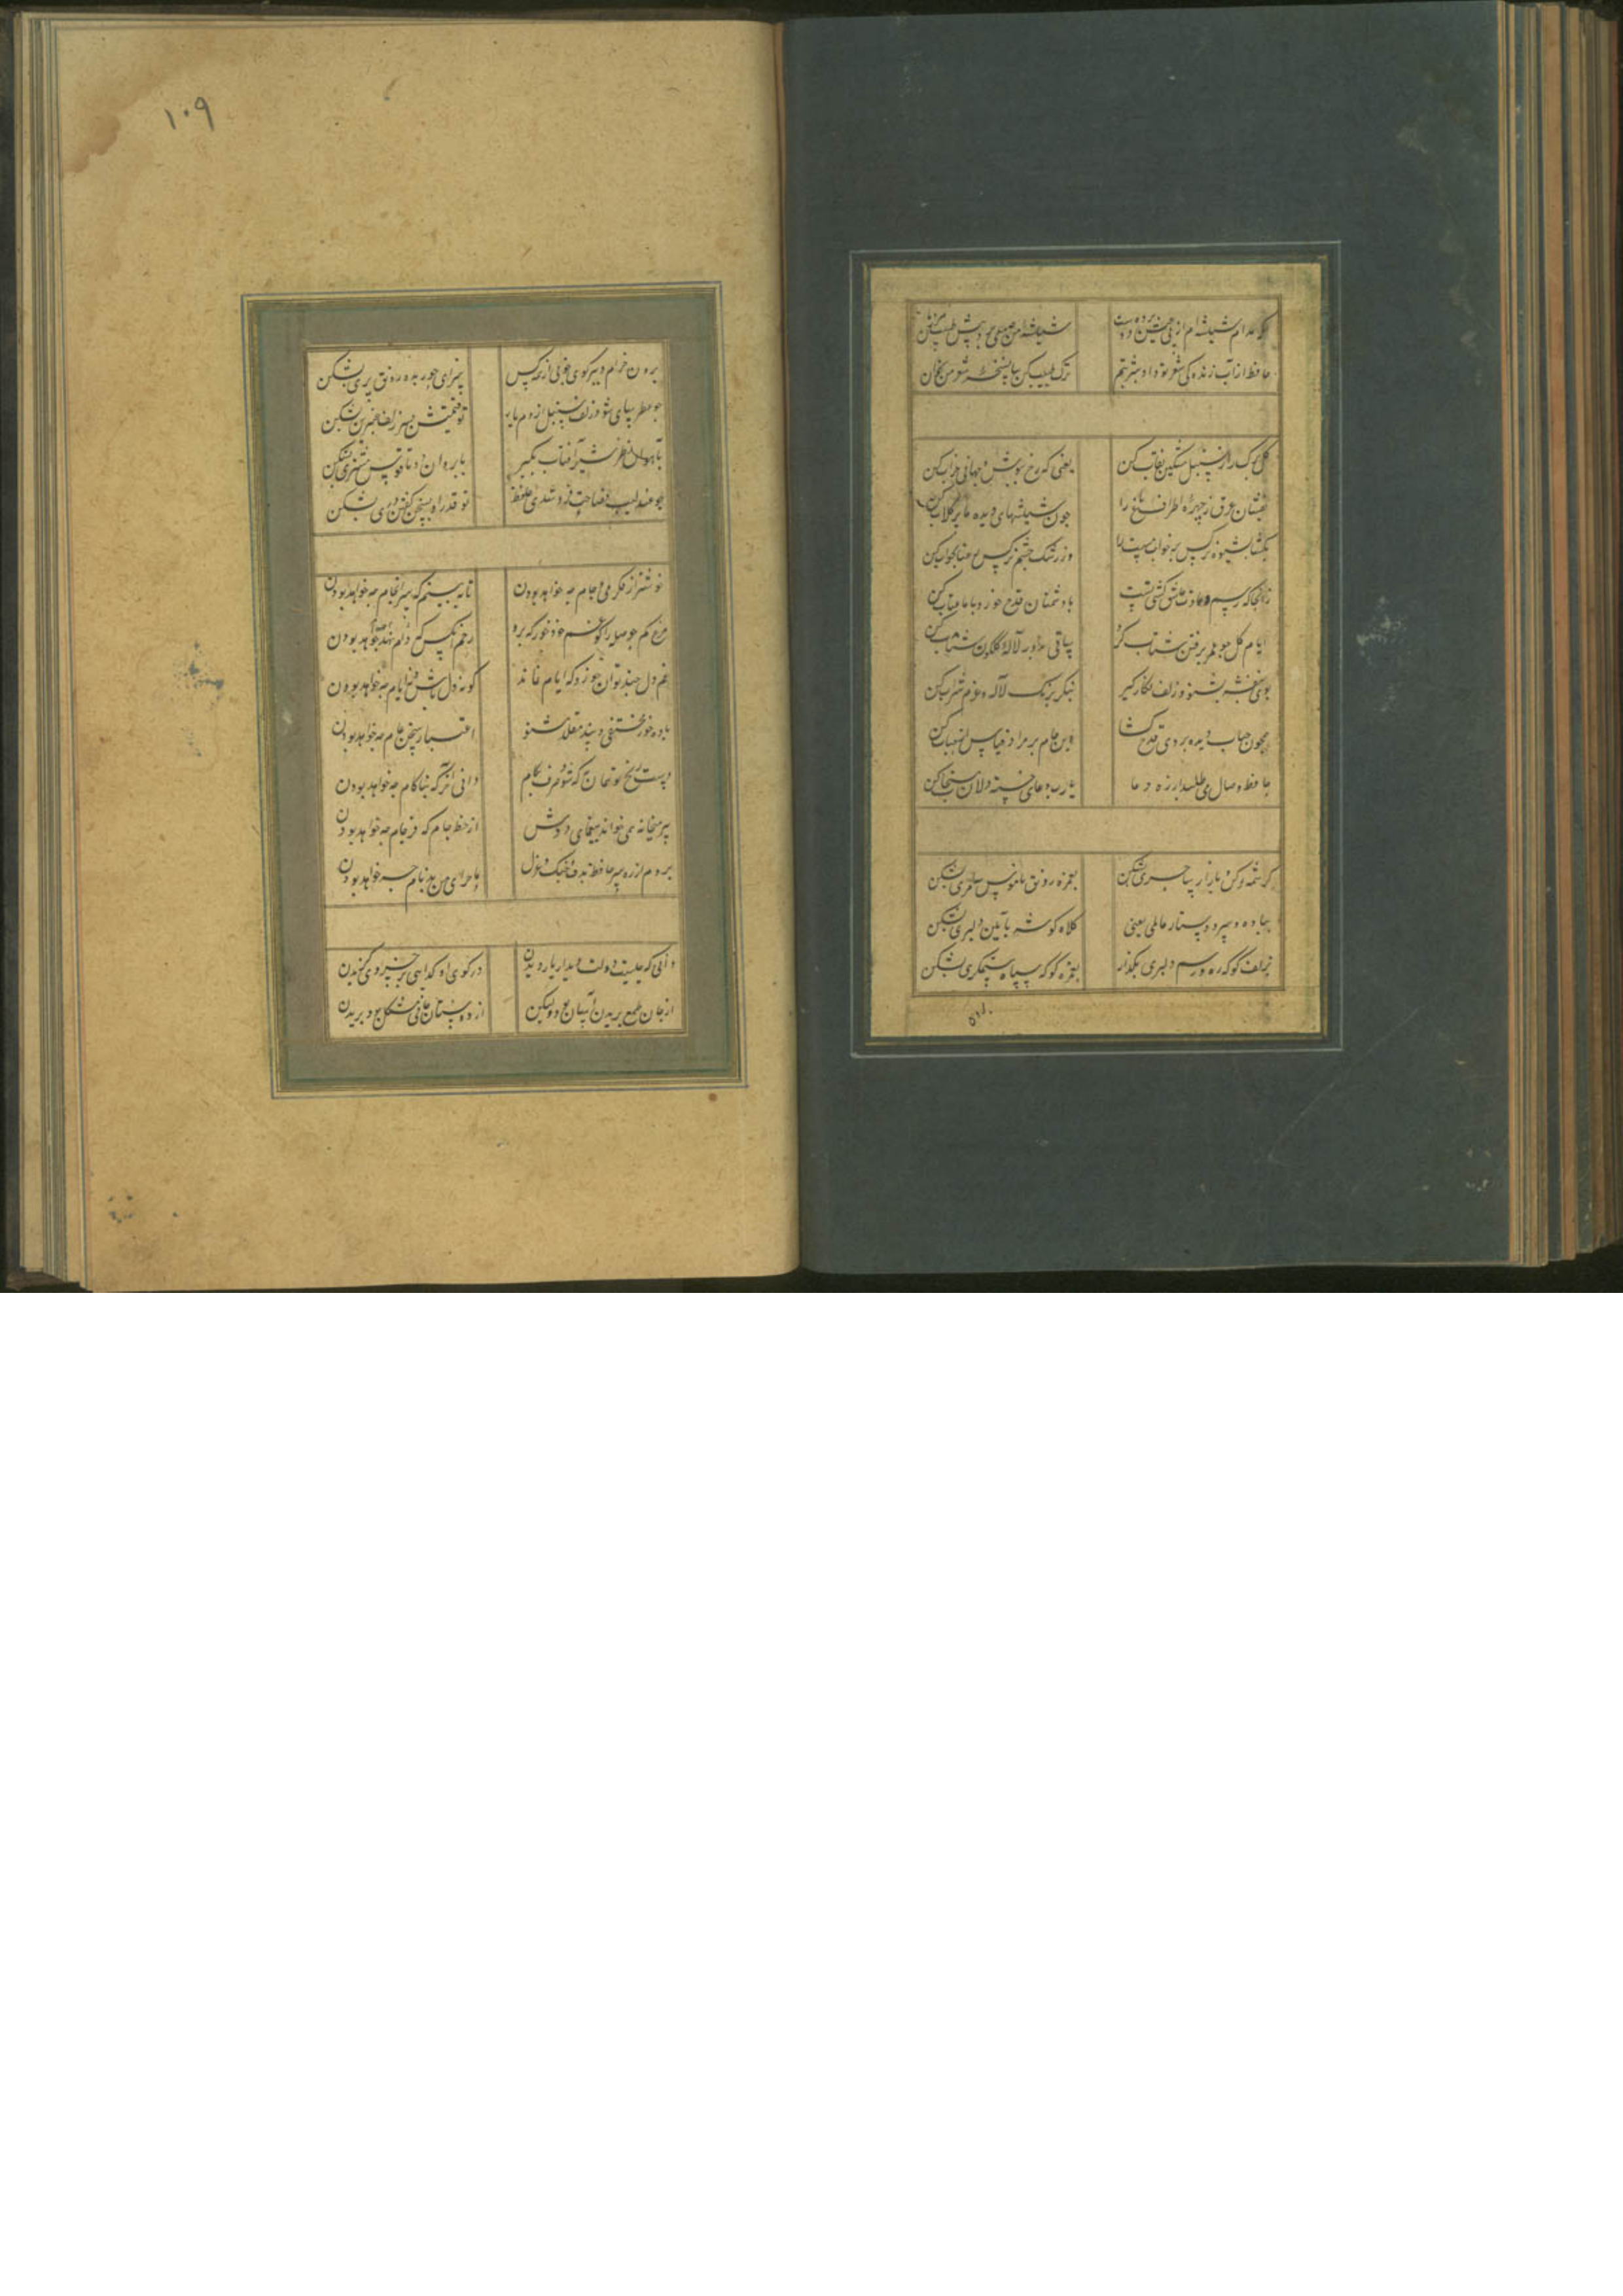 که مدام شیشه‌ام از پی عیش داده است
شیشه‌ام من صبحی بر پیش طبیب
حافظ از آب زندگی شعر تو داد شربتم
ترک طبیب کن بیا نسخه شربتم بخوان
گلبرگ را ز سنبل مشکین نقاب کن
یعنی که رخ بپوش و جهانی خراب کن
بفشان عرق ز چهره و اطراف باغ را
چون شیشهای دیده ما پر گلاب کن
بگشا بشیوه نرگس پر خواب مست را
وز رشک چشم نرگس رعنا بخواب کن
زانجا که رسم و عادت عاشق کشی تست
با دشمنان قدح خور و با ما عتاب کن
ایام گل چو عمر برفتن شتاب کرد
ساقی بدور لاله گلگون شتاب کن
بوی بنفشه بشنو و زلف نگار گیر
بنگر برنگ لاله و عزم شراب کن
همچون حباب دیده بروی قدح گشا
وین جام بر مراد قیاس از حباب کن
حافظ وصال می‌طلبد از ره دعا
یا رب دعای خسته دلان مستجاب کن
کرشمه کن و بازار ساحری بشکن
بغمزه رونق ناموس سامری بشکن
بباد ده سر و دستار عالمی یعنی
کلاه گوشه بآیین دلبری بشکن
بزلف گو که ره و رسم دلبری بگذار
بغمزه گو که سپاه ستمگری بشکن
۱۰۹
برون خرام و ببر گوی خوبی از همه کس
سزای حور بده رونق پری بشکن
چو عطرسای شود زلف سنبل از دم باد
تو قیمتش بسر زلف عنبرین بشکن
بآهوان نظر شیر آفتاب بگیر
بابروان دوتا قوس مشتری بشکن
چو عندلیب فصاحت فروشد ای حافظ
تو قدر او بسخن گفتن دری بشکن
خوشتر از فکر می و جام چه خواهد بودن
تا ببینم که سرانجام چه خواهد بودن
مرغ کم حوصله را گو غم خود خور که برو
رحم آنکس که نهد دام چه خواهد بودن
غم دل چند توان خورد که ایام نماند
گو نه دل باش و نه ایام چه خواهد بودن
باده خور غم مخور و پند مقلد مشنو
اعتبار سخن عام چه خواهد بودن
دست رنج تو همان به که شود صرف بکام
دانی آخر که بناکام چه خواهد بودن
پیر میخانه همی خواند معمایی دوش
از خط جام که فرجام چه خواهد بودن
بردم از ره دل حافظ بدف و چنگ و غزل
ماجرای من بدنام چه خواهد بودن
دانی که چیست دولت دیدار یار دیدن
در کوی او گدایی بر خسروی گزیدن
از جان طمع بریدن آسان بود ولیکن
از دوستان جانی مشکل بود بریدن